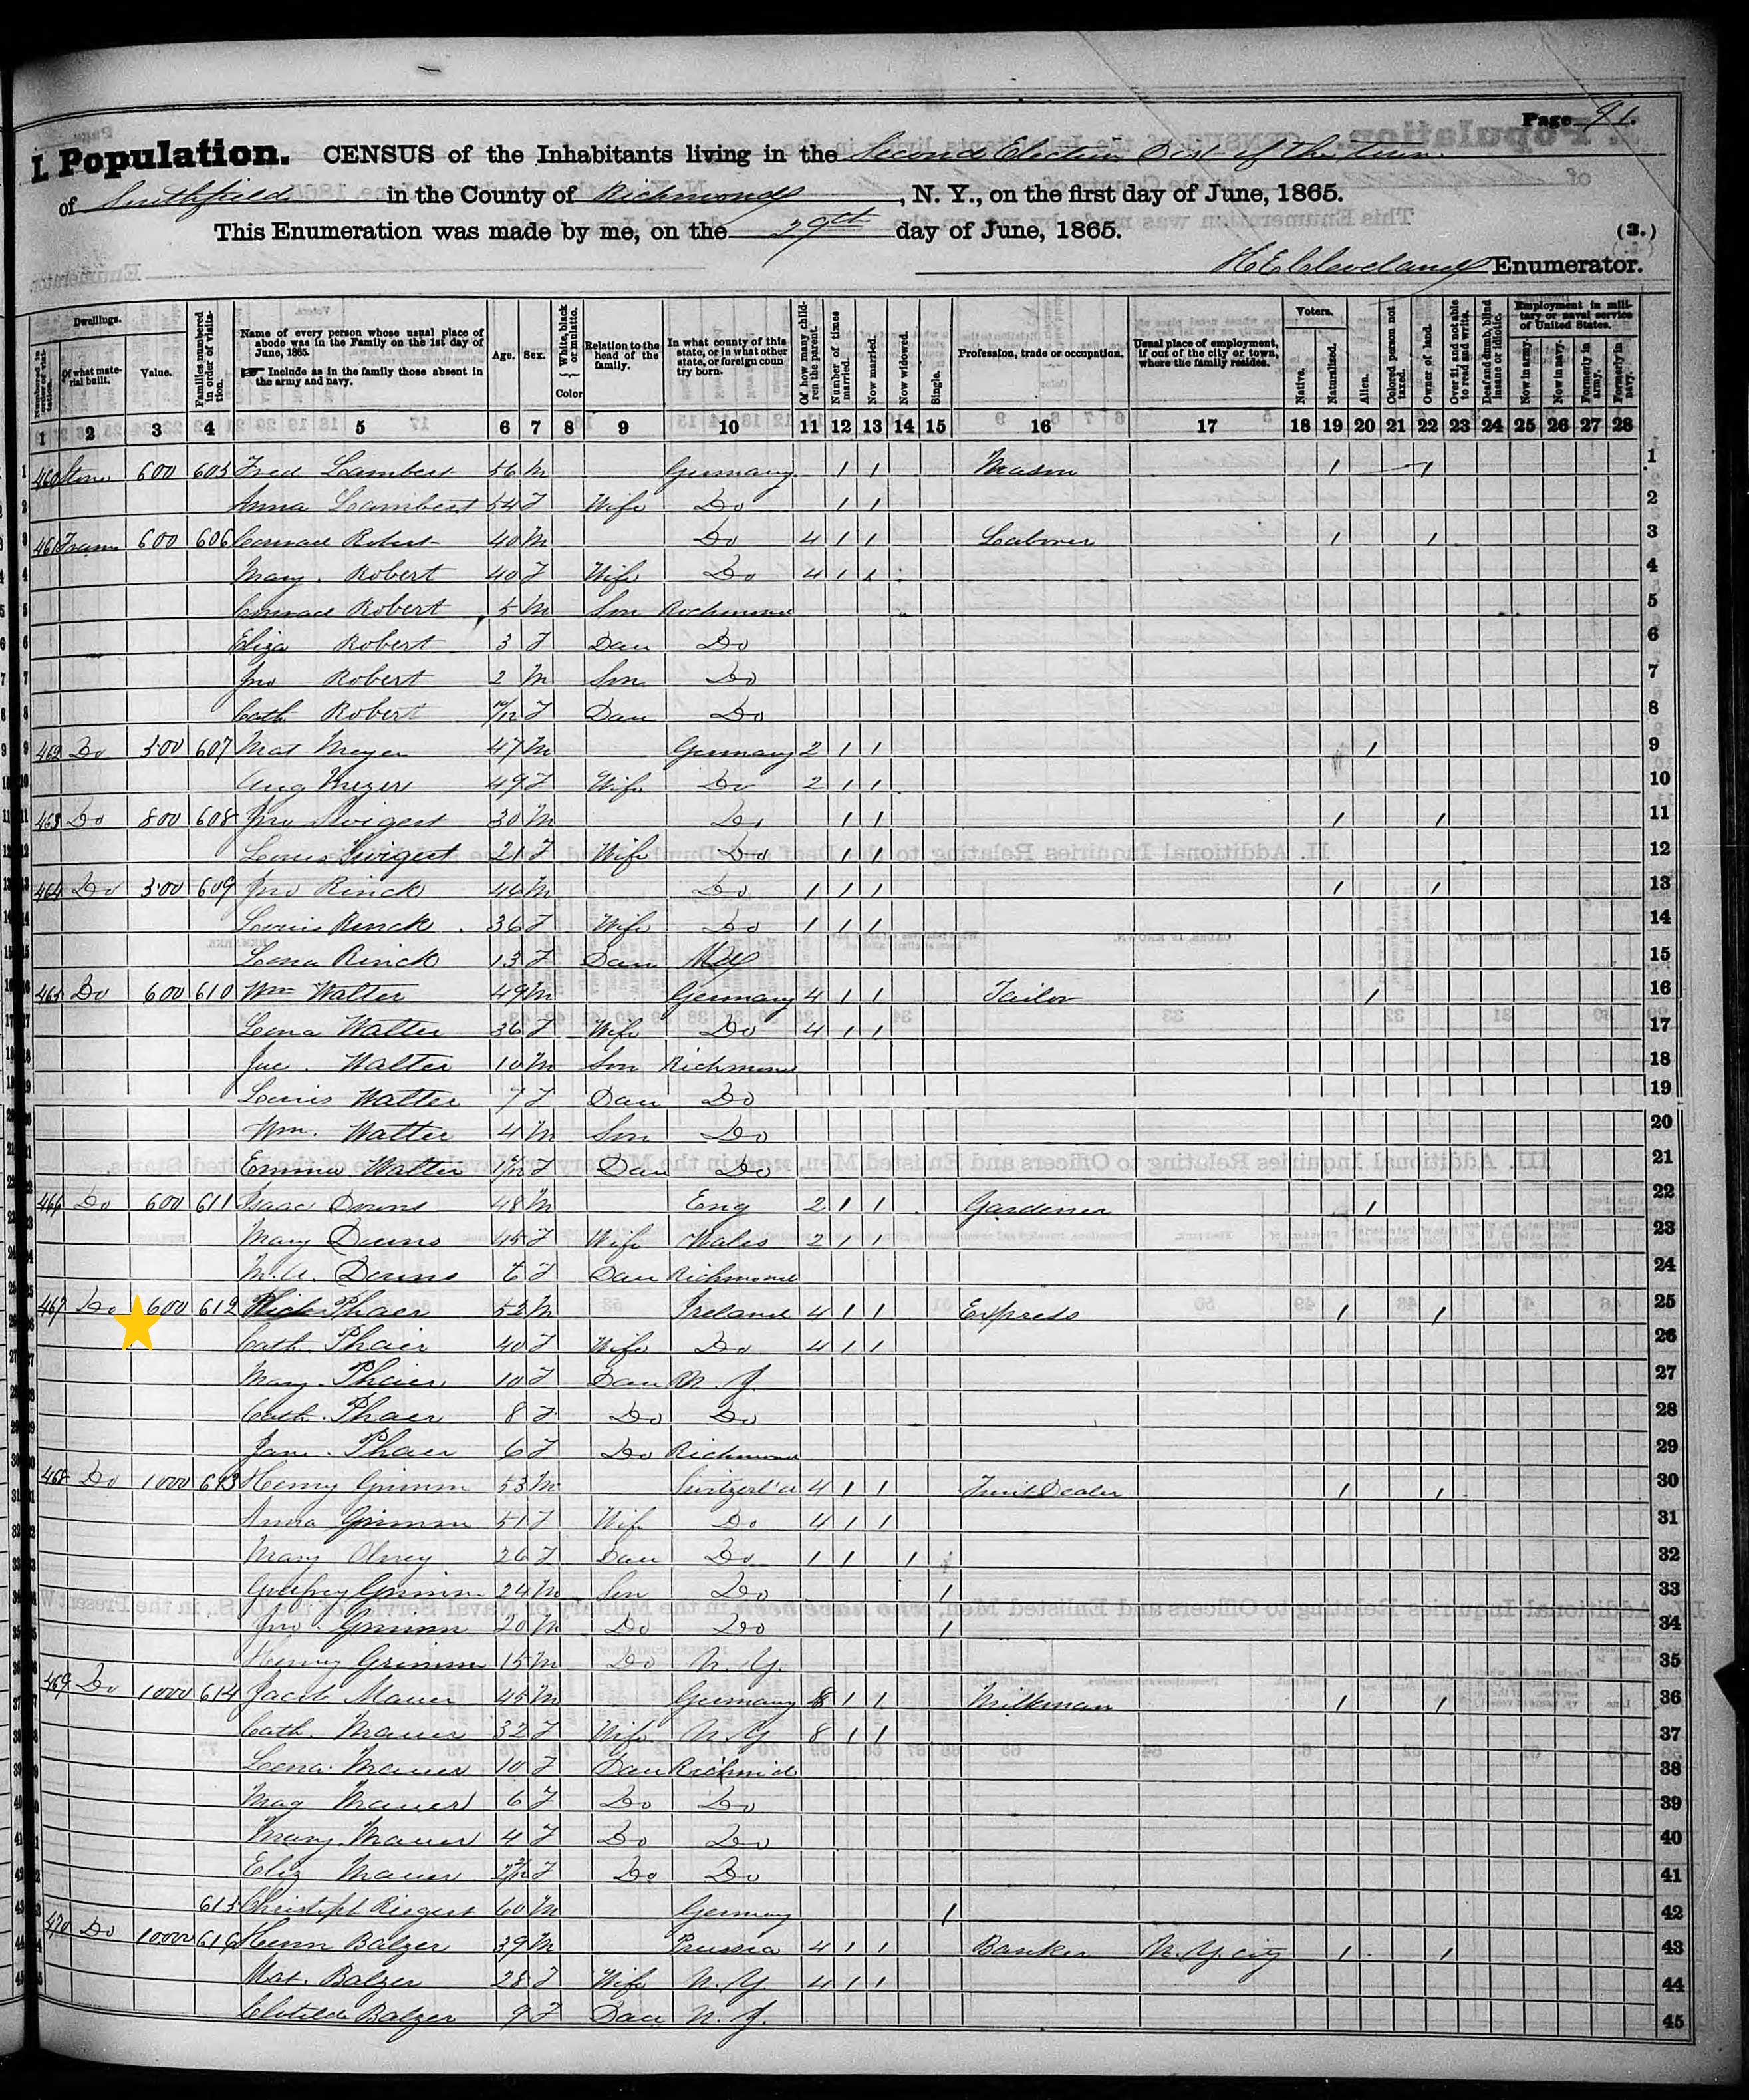 Page 91.
I. Population. CENSUS of the Inhabitants living in the Second Election Dist of the Town
of Southfield in the County of Richmond, N. Y., on the first day of June, 1865.
This Enumeration was made by me, on the 29th day of June, 1865.
(3.)
H E Cleveland Enumerator.
Dwellings.
Numbered in order of visitation.
Of what material built.
Value.
Families numbered in order of visitation.
Name of every person whose usual place of abode was in the Family on the 1st day of June, 1865.
Include as in the family those absent in the army and navy.
Age.
Sex.
White, black or mulatto.
Color
Relation to the head of the family.
In what county of this state, or in what other state, or foreign country born.
Of how many children the parent.
Number of times married.
Now married.
Now widowed.
Single.
Profession, trade or occupation.
Usual place of employment, if out of the city or town, where the family resides.
Voters.
Native.
Naturalized.
Alien.
Colored person not taxed.
Owner of land.
Over 21, and not able to read and write.
Deaf and dumb, blind insane or idiotic.
Employment in military or naval service of United States.
Now in army.
Now in navy.
Formerly in army.
Formerly in navy.
1 2 3 4 5 6 7 8 9 10 11 12 13 14 15 16 17 18 19 20 21 22 23 24 25 26 27 28
1 460 Stone 600 605 Fred Lambert 56 M Germany 1 1 Mason 1 1 1
2 Anna Lambert 54 F Wife Do 1 1 2
3 461 Fram 600 606 Conrad Robert 40 M Do 4 1 1 Laborer 1 1 3
4 Mary Robert 40 F Wife Do 4 1 1 4
5 Conrad Robert 5 M Son Richmond 5
6 Eliza Robert 3 F Dau Do 6
7 Jno Robert 2 M Son Do 7
8 Cath Robert F Dau Do 8
9 462 Do 300 607 Mat Meyer 47 M Germany 2 1 1 1 9
10 Aug Meyer 49 F Wife Do 2 1 1 10
11 463 Do 800 608 Jno Swigert 30 M Do 1 1 1 1 11
12 Louis Swigert 21 F Wife Do 1 1 12
13 464 Do 300 609 Jno Rinck 46 M Do 1 1 1 1 1 13
14 Louis Rinck 36 F Wife Do 1 1 1 14
15 Lena Rinck 13 F Dau 15
16 465 Do 600 610 Wm Walter 49 M Germany 4 1 1 Tailor 1 16
17 Lena Walter 36 F Wife Do 4 1 1 17
18 Jac. Walter 10 M Son Richmond 18
19 Louis Walter 7 F Dau Do 19
20 Wm. Walter 4 M Son Do 20
21 Emma Walter F Dau Do 21
22 466 Do 600 611 Isaac Downs 48 M Eng 2 1 1 Gardiner 1 22
23 Mary Downs 45 F Wife Wales 2 1 1 23
24 M. A. Downs 6 F Dau Richmond 24
25 467 Do 600 612 Phaer 53 M Ireland 4 1 1 Express 1 1 25
26 Cath. Phaer 40 F Wife Do 4 1 1 26
27 Mary Phaer 10 F Dau N. J. 27
28 Cath. Phaer 8 F Do Do 28
29 Jane. Phaer 6 F Do Richmond 29
30 468 Do 1000 613 Henry Grimm 53 M Switzerl'd 4 1 1 Fruit Dealer 1 1 30
31 Anna Grimm 51 F Wife Do 4 1 1 31
32 Mary Olney 26 F Dau Do 1 1 1 32
33 Godfrey Grimm 24 M Son Do 1 33
34 Jno. Grimm 20 M Do Do 1 34
35 Henry Grimm 15 M Do N. Y. 35
36 469 Do 1000 614 Jacob Maner 45 M Germany 8 1 1 Milkman 1 1 36
37 Cath. Maner 32 F Wife N. Y 8 1 1 37
38 Leena Maner 10 F Dau Richmd 38
39 Mag Maner 6 F Do Do 39
40 Mary Maner 4 F Do Do 40
41 Eliz Maner F Do Do 41
42 615 Christoph Riegert 60 M Germany 1 42
43 470 Do 10000 616 Herm Balzer 39 M Prussia 4 1 1 Banker N. Y. city 1 1 43
44 Mat. Balzer 28 F Wife N. Y. 4 1 1 44
45 Clotilde Balzer 9 F Dau N. J. 45